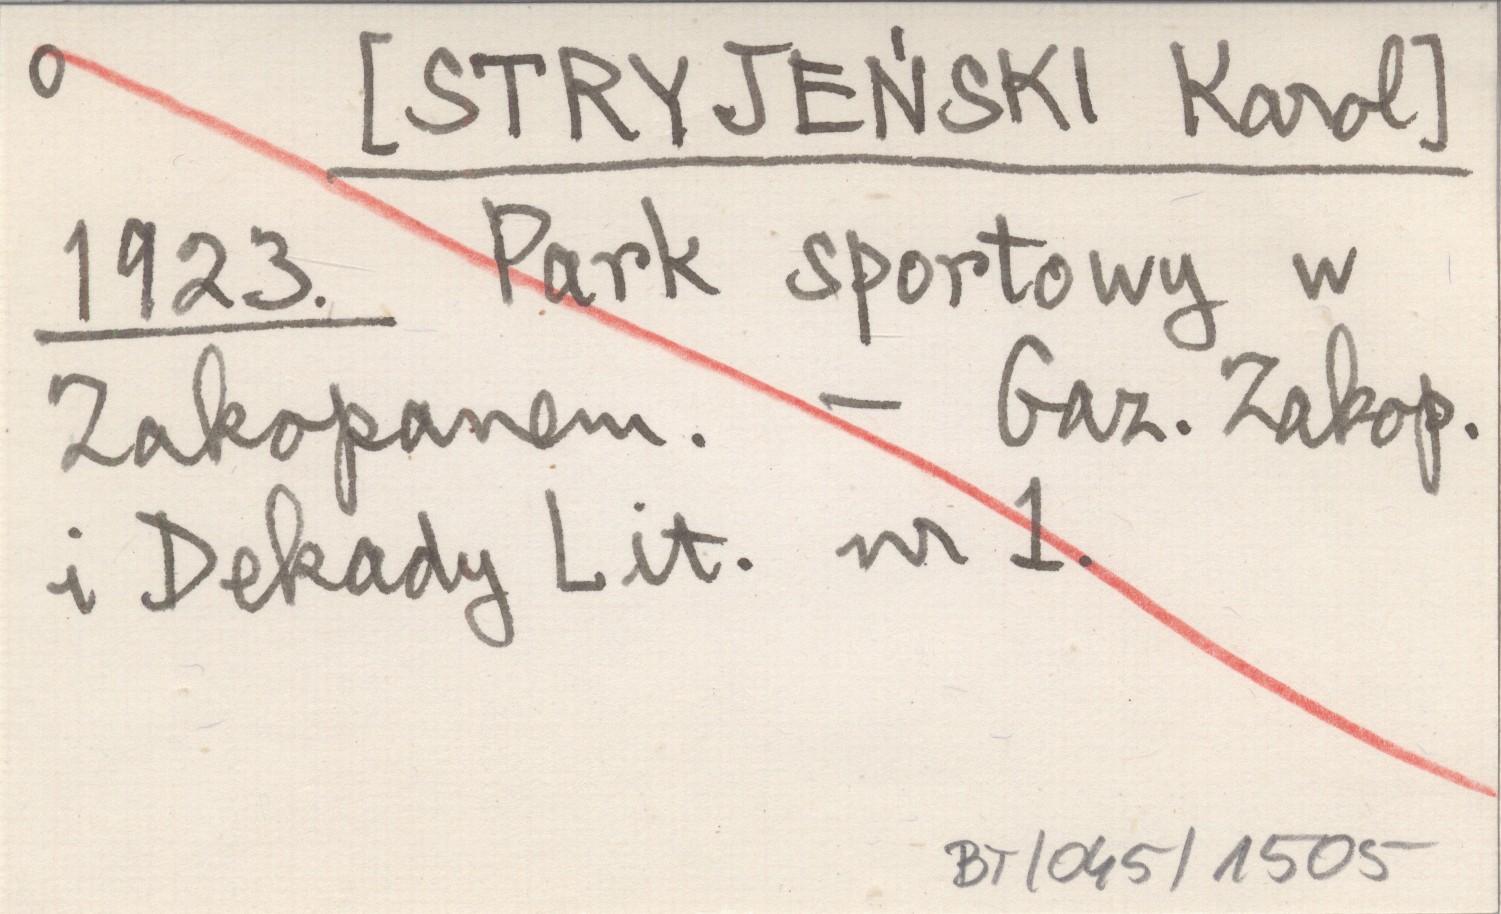 o [STRYJEŃSKI Karol]
1923. Park sportowy w
Zakopanem. – Gaz. Zakop.
i Dekady Lit. nr 1.
BT/045/1505